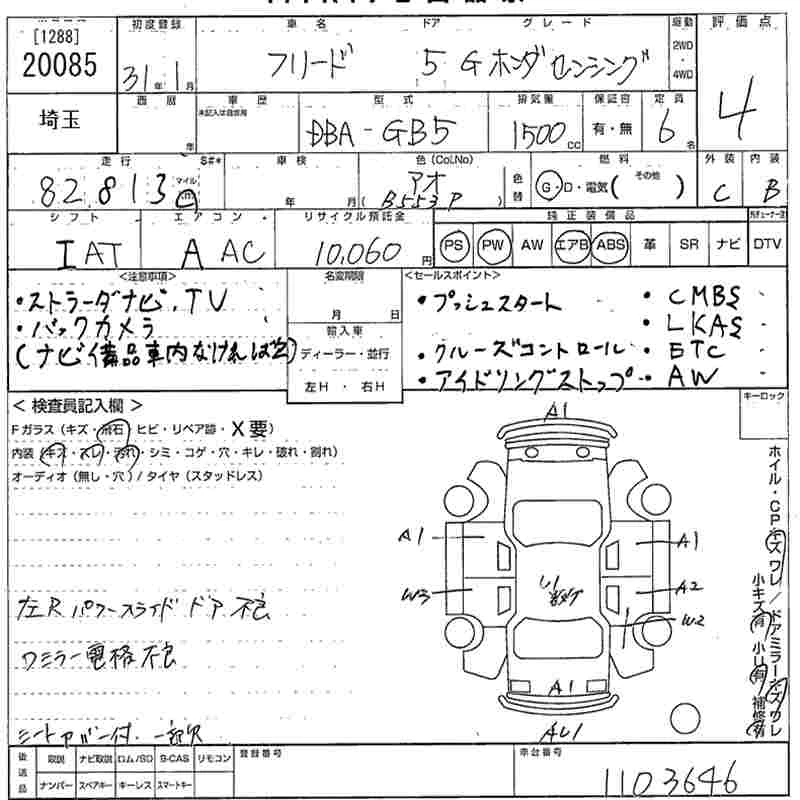 [1288]
20085
初度登録
31年1月
車名
フリード
ドア
5
グレード
Gホンダセンシング
駆動
2WD
・
4WD
評価点
4
埼玉
西暦
年
車歴
未記入は自家用
型式
DBA-GB5
排気量
1500cc
保証書
有・無
定員
6名
走行
82,813
マイル
km
S#*
車検
年 月
色(CoLNo)
アオ
(B553P)
色替
燃料
G・D・電気(その他 )
外装
C
内装
B
シフト
IAT
エアコン
AAC
リサイクル預託金
10,060円
純正装備品
PS PW AW エアB ABS 革 SR ナビ
DTV
<注意事項>
・ストラーダナビ、TV
・バックカメラ
(ナビ備品車内なければ欠)
名変期限
月 日
輸入車
ディーラー・並行
左H ・ 右H
<セールスポイント>
・プッシュスタート
・クルーズコントロール
・アイドリングストップ
・CMBS
・LKAS
・ETC
・AW
< 検査員記入欄 >
Fガラス(キズ・飛石・ヒビ・リペア跡・X要)
内装(キズ・スレ・汚れ・シミ・コゲ・穴・キレ・破れ・割れ)
オーディオ(無し・穴)/タイヤ(スタッドレス)
左R パワースライドドア 不良
ワミラー電格不良
シートカバー付 一部欠
キーロック
ホイル・CPキズワレ/ドアミラーキズワレ
小キズ有 小U有 補修有
A1
A1
A1
W3
A2
W2
U1
A1
AU1
後送品
取説 ナビ取説 ロム/SD B-CAS リモコン
ナンバー スペアキー キーレス スマートキー
登録番号
車台番号
1103646